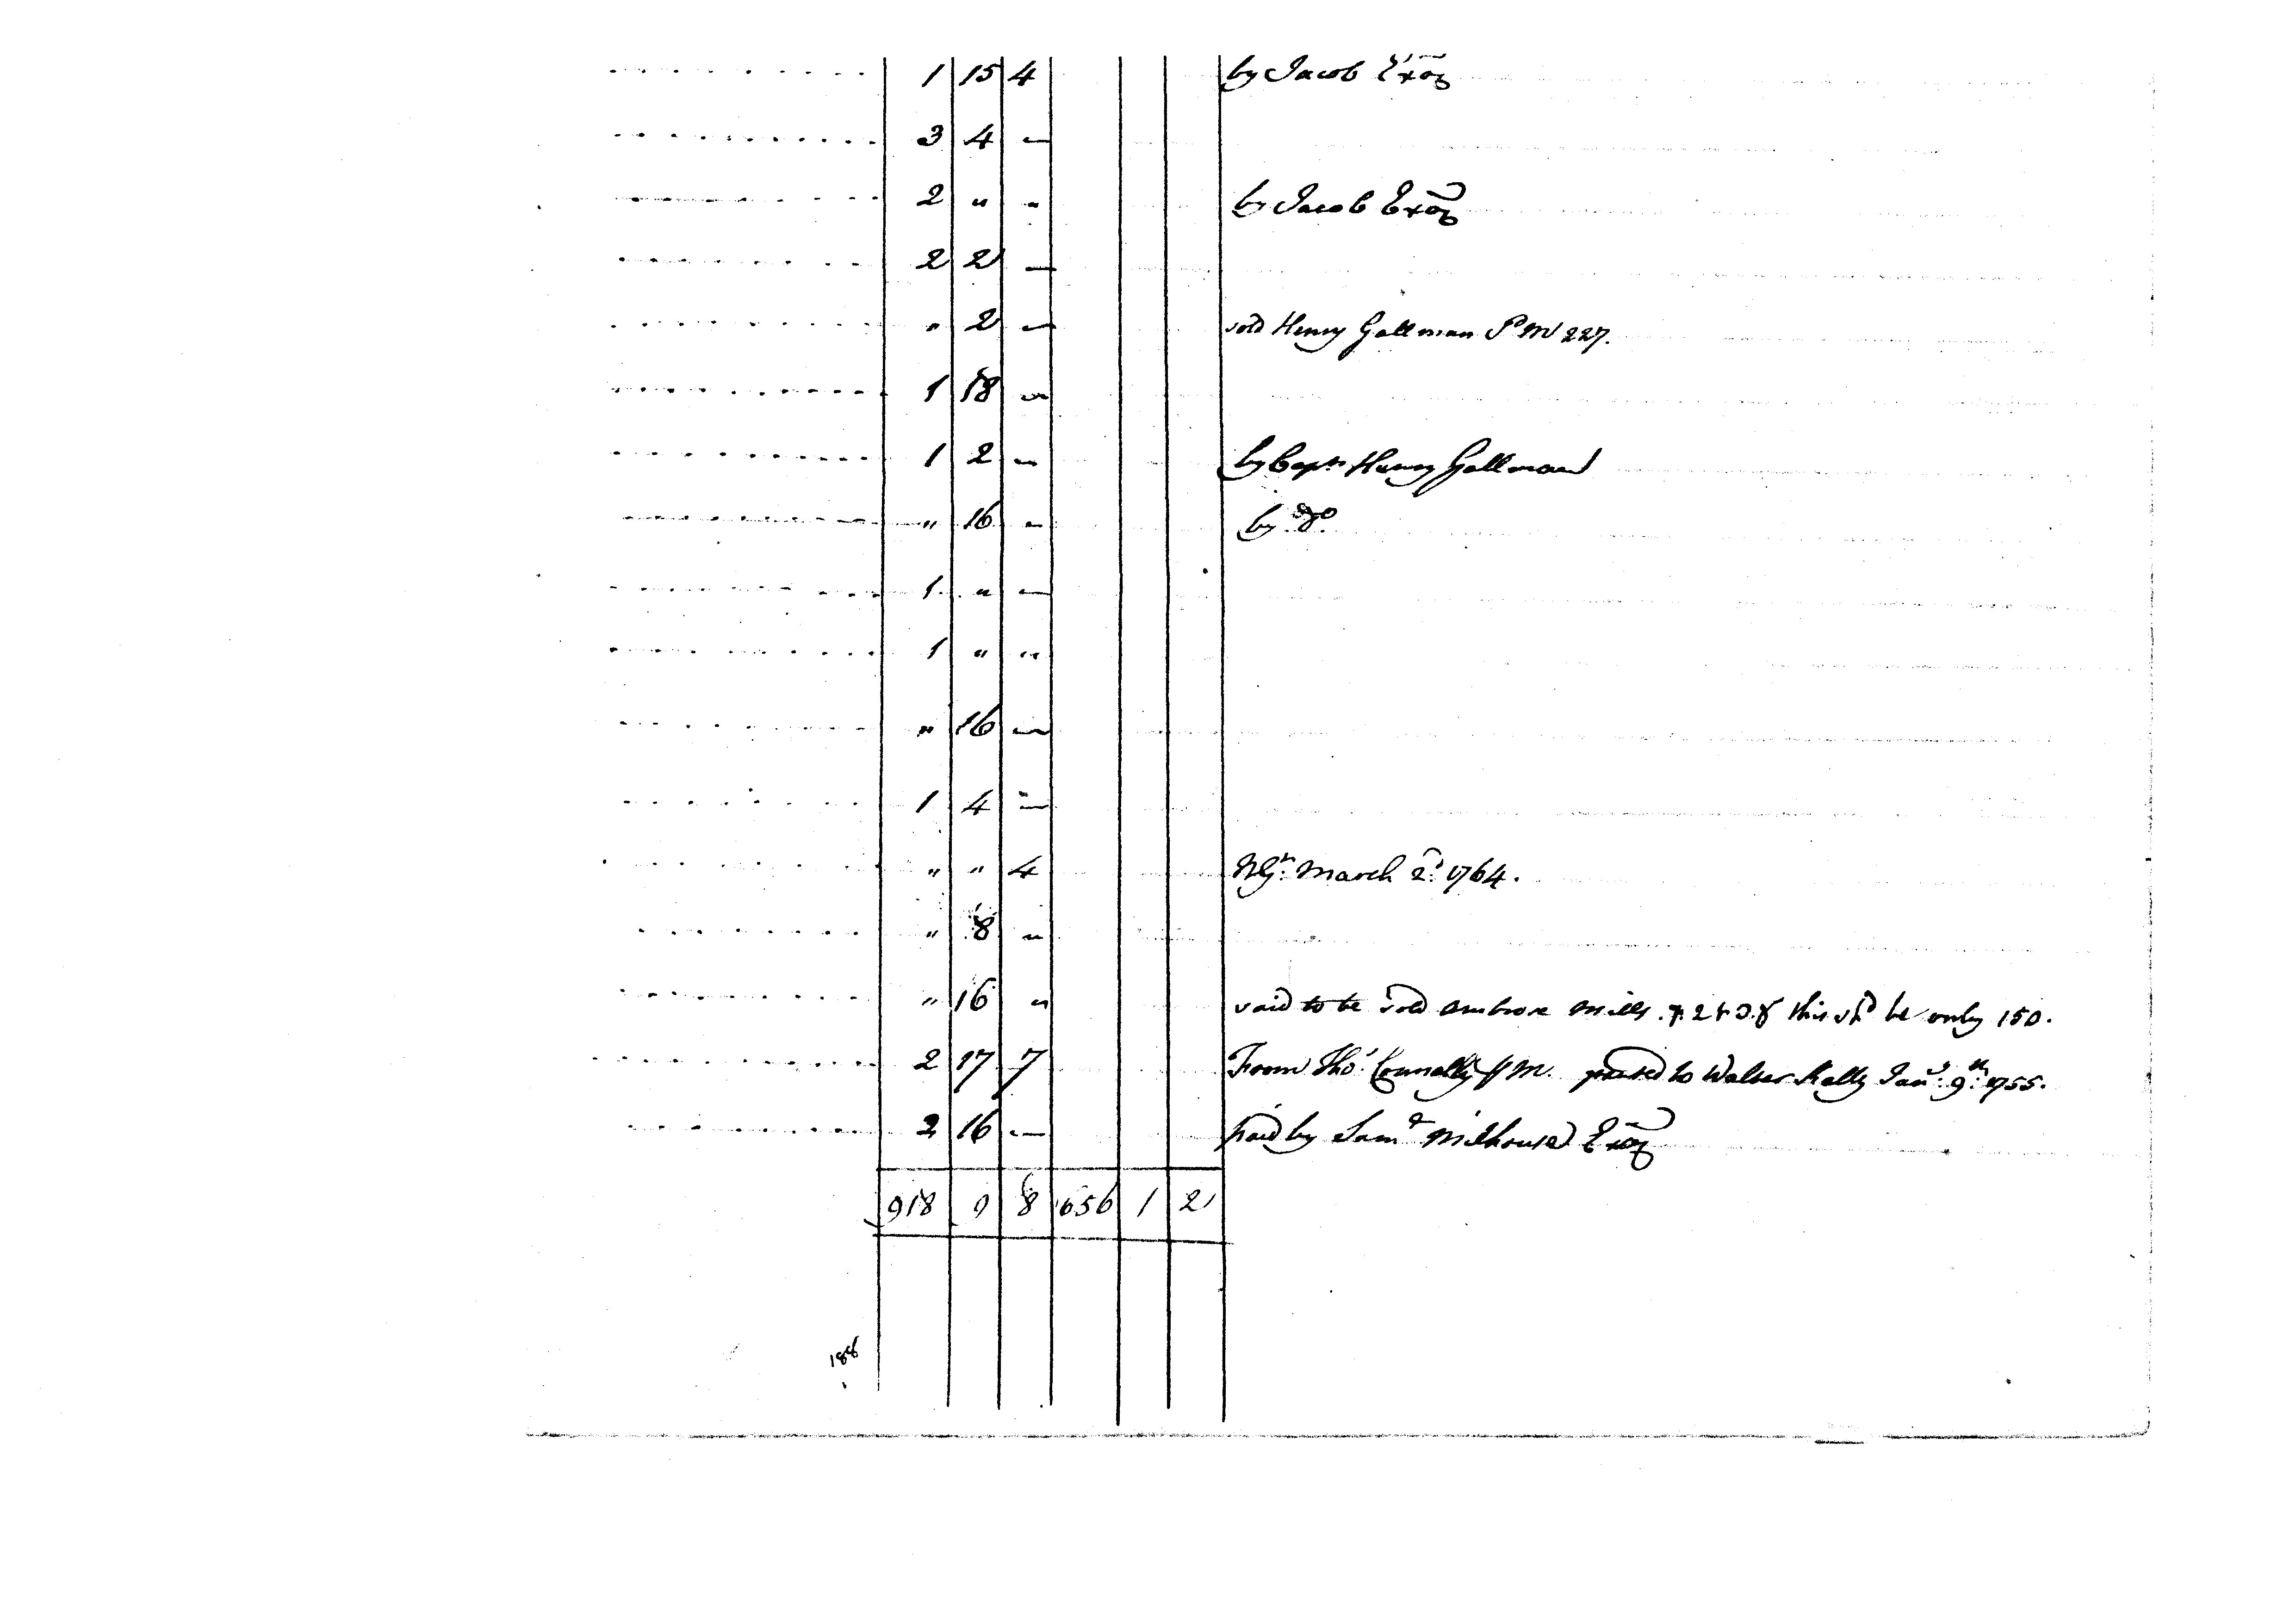 1 15 4 by Jacob Exor
3 4 —
2 " " by Jacob Exor
2 2 —
" 2 — sold Henry Gallman P M 227.
1 18 —
1 2 — by Capt. Henry Gallman
" 16 — by Do.
1 " —
1 " "
" 16 —
1 4 —
" " 4 March 2d. 1764.
" 8 "
" 16 " said to be sold Ambrose Mills this shd be only 150.
2 17 7 From Tho.s Connelly M. passed to Walter Kelly Jany. 9th. 1755.
2 16 — paid by Saml Milhouse Exor
918 9 8 656 1 2
188